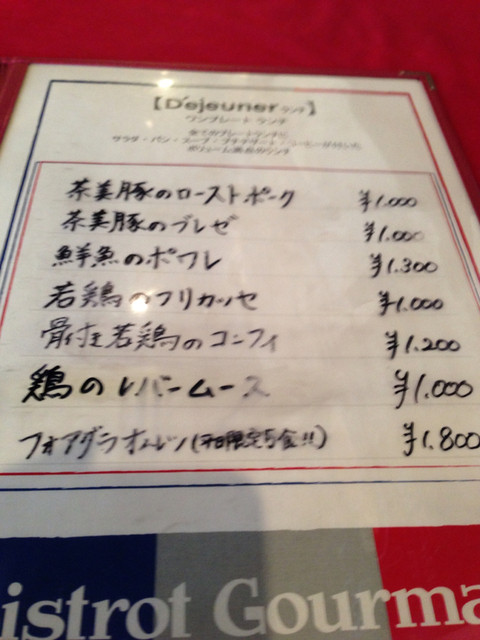 【Déjeuner ランチ】
ワンプレート ランチ
全てのプレートランチに
サラダ・パン・スープ・プチデザート・コーヒーが付いた
ボリューム満点のランチ
茶美豚のローストポーク ¥1.000
茶美豚のブレゼ ¥1.000
鮮魚のポワレ ¥1.300
若鶏のフリカッセ ¥1.000
骨付き若鶏のコンフィ ¥1.200
鶏のレバームース ¥1.000
フォアグラオムレツ(平日限定5食!!) ¥1.800
istrot Gourma